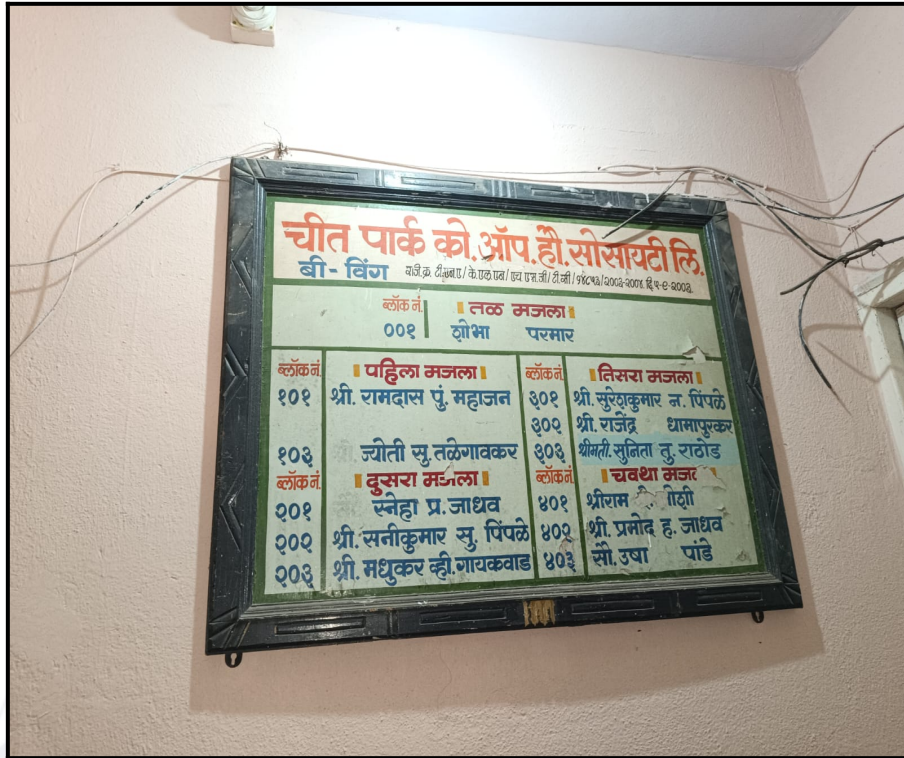 चीत पार्क को. ऑप. हौ. सोसायटी लि.
बी - विंग
ब्लॉक नं. तळ मजला
००१ शोभा परमार
ब्लॉक नं. पहिला मजला
१०१ श्री. रामदास पुं. महाजन
१०३ ज्योती सु. तळेगावकर
ब्लॉक नं. दुसरा मजला
२०१ स्नेहा प्र. जाधव
२०२ श्री. सनीकुमार सु. पिंपळे
२०३ श्री. मधुकर व्ही. गायकवाड
ब्लॉक नं. तिसरा मजला
३०१ श्री. सुरेशकुमार न. पिंपळे
३०२ श्री. राजेंद्र धामापुरकर
३०३ श्रीमती. सुनिता तु. राठोड
ब्लॉक नं. चवथा
४०१ श्रीराम
४०२ श्री. प्रमोद ह. जाधव
४०३ सौ. उषा पांडे